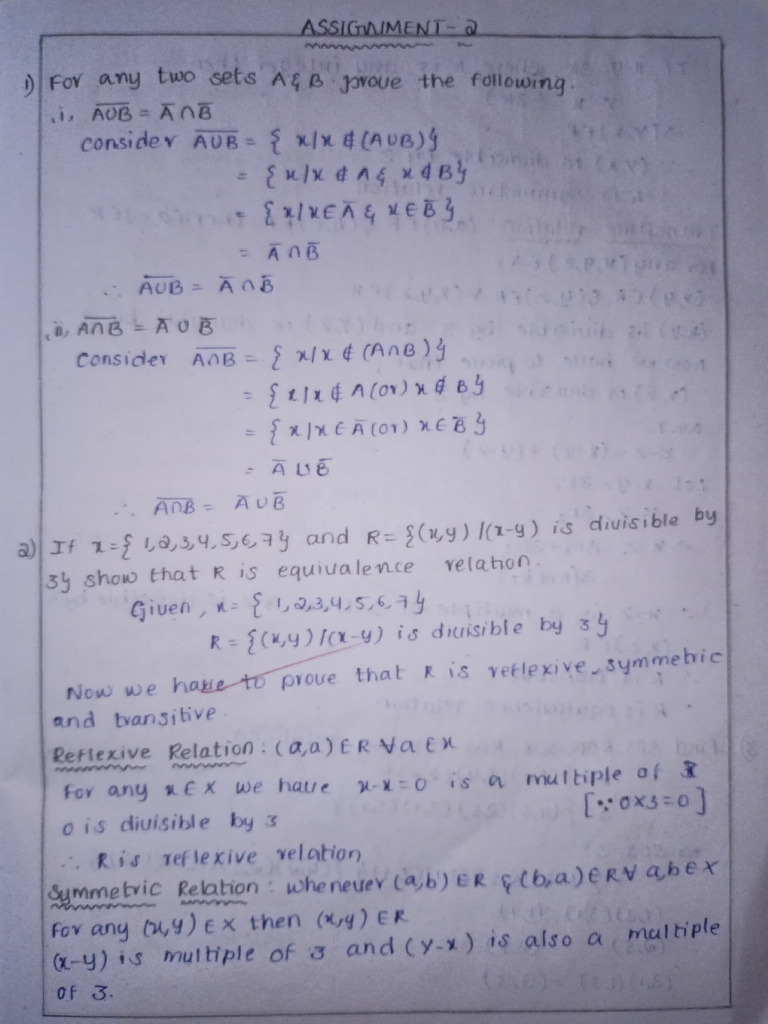 ASSIGNMENT - 2
1) For any two sets A & B prove the following.
i, A̅U̅B̅ = A̅ ∩ B̅
consider A̅U̅B̅ = { x/x ∉ (AUB)}
= { x/x ∉ A & x ∉ B}
= { x/x ∈ A̅ & x ∈ B̅ }
= A̅ ∩ B̅
∴ A̅U̅B̅ = A̅ ∩ B̅
ii, A̅∩̅B̅ = A̅ U B̅
Consider A̅∩̅B̅ = { x/x ∉ (A∩B)}
= { x/x ∉ A (or) x ∉ B}
= { x/x ∈ A̅ (or) x ∈ B̅ }
= A̅ U B̅
∴ A̅∩̅B̅ = A̅ U B̅
2) If x = { 1,2,3,4,5,6,7} and R = {(x,y) /(x-y) is divisible by
3} show that R is equivalence relation.
Given, x = { 1,2,3,4,5,6,7}
R = {(x,y) /(x-y) is divisible by 3}
Now we have to prove that R is reflexive, symmetric
and transitive.
Reflexive Relation : (a,a) ∈ R ∀ a ∈ x
For any x ∈ X we have x-x=0 is a multiple of 3
0 is divisible by 3 [∵ 0x3=0]
∴ R is reflexive relation
Symmetric Relation : whenever (a,b) ∈ R & (b,a) ∈ R ∀ a,b ∈ X
For any (x,y) ∈ X then (x,y) ∈ R
(x-y) is multiple of 3 and (y-x) is also a multiple
of 3.